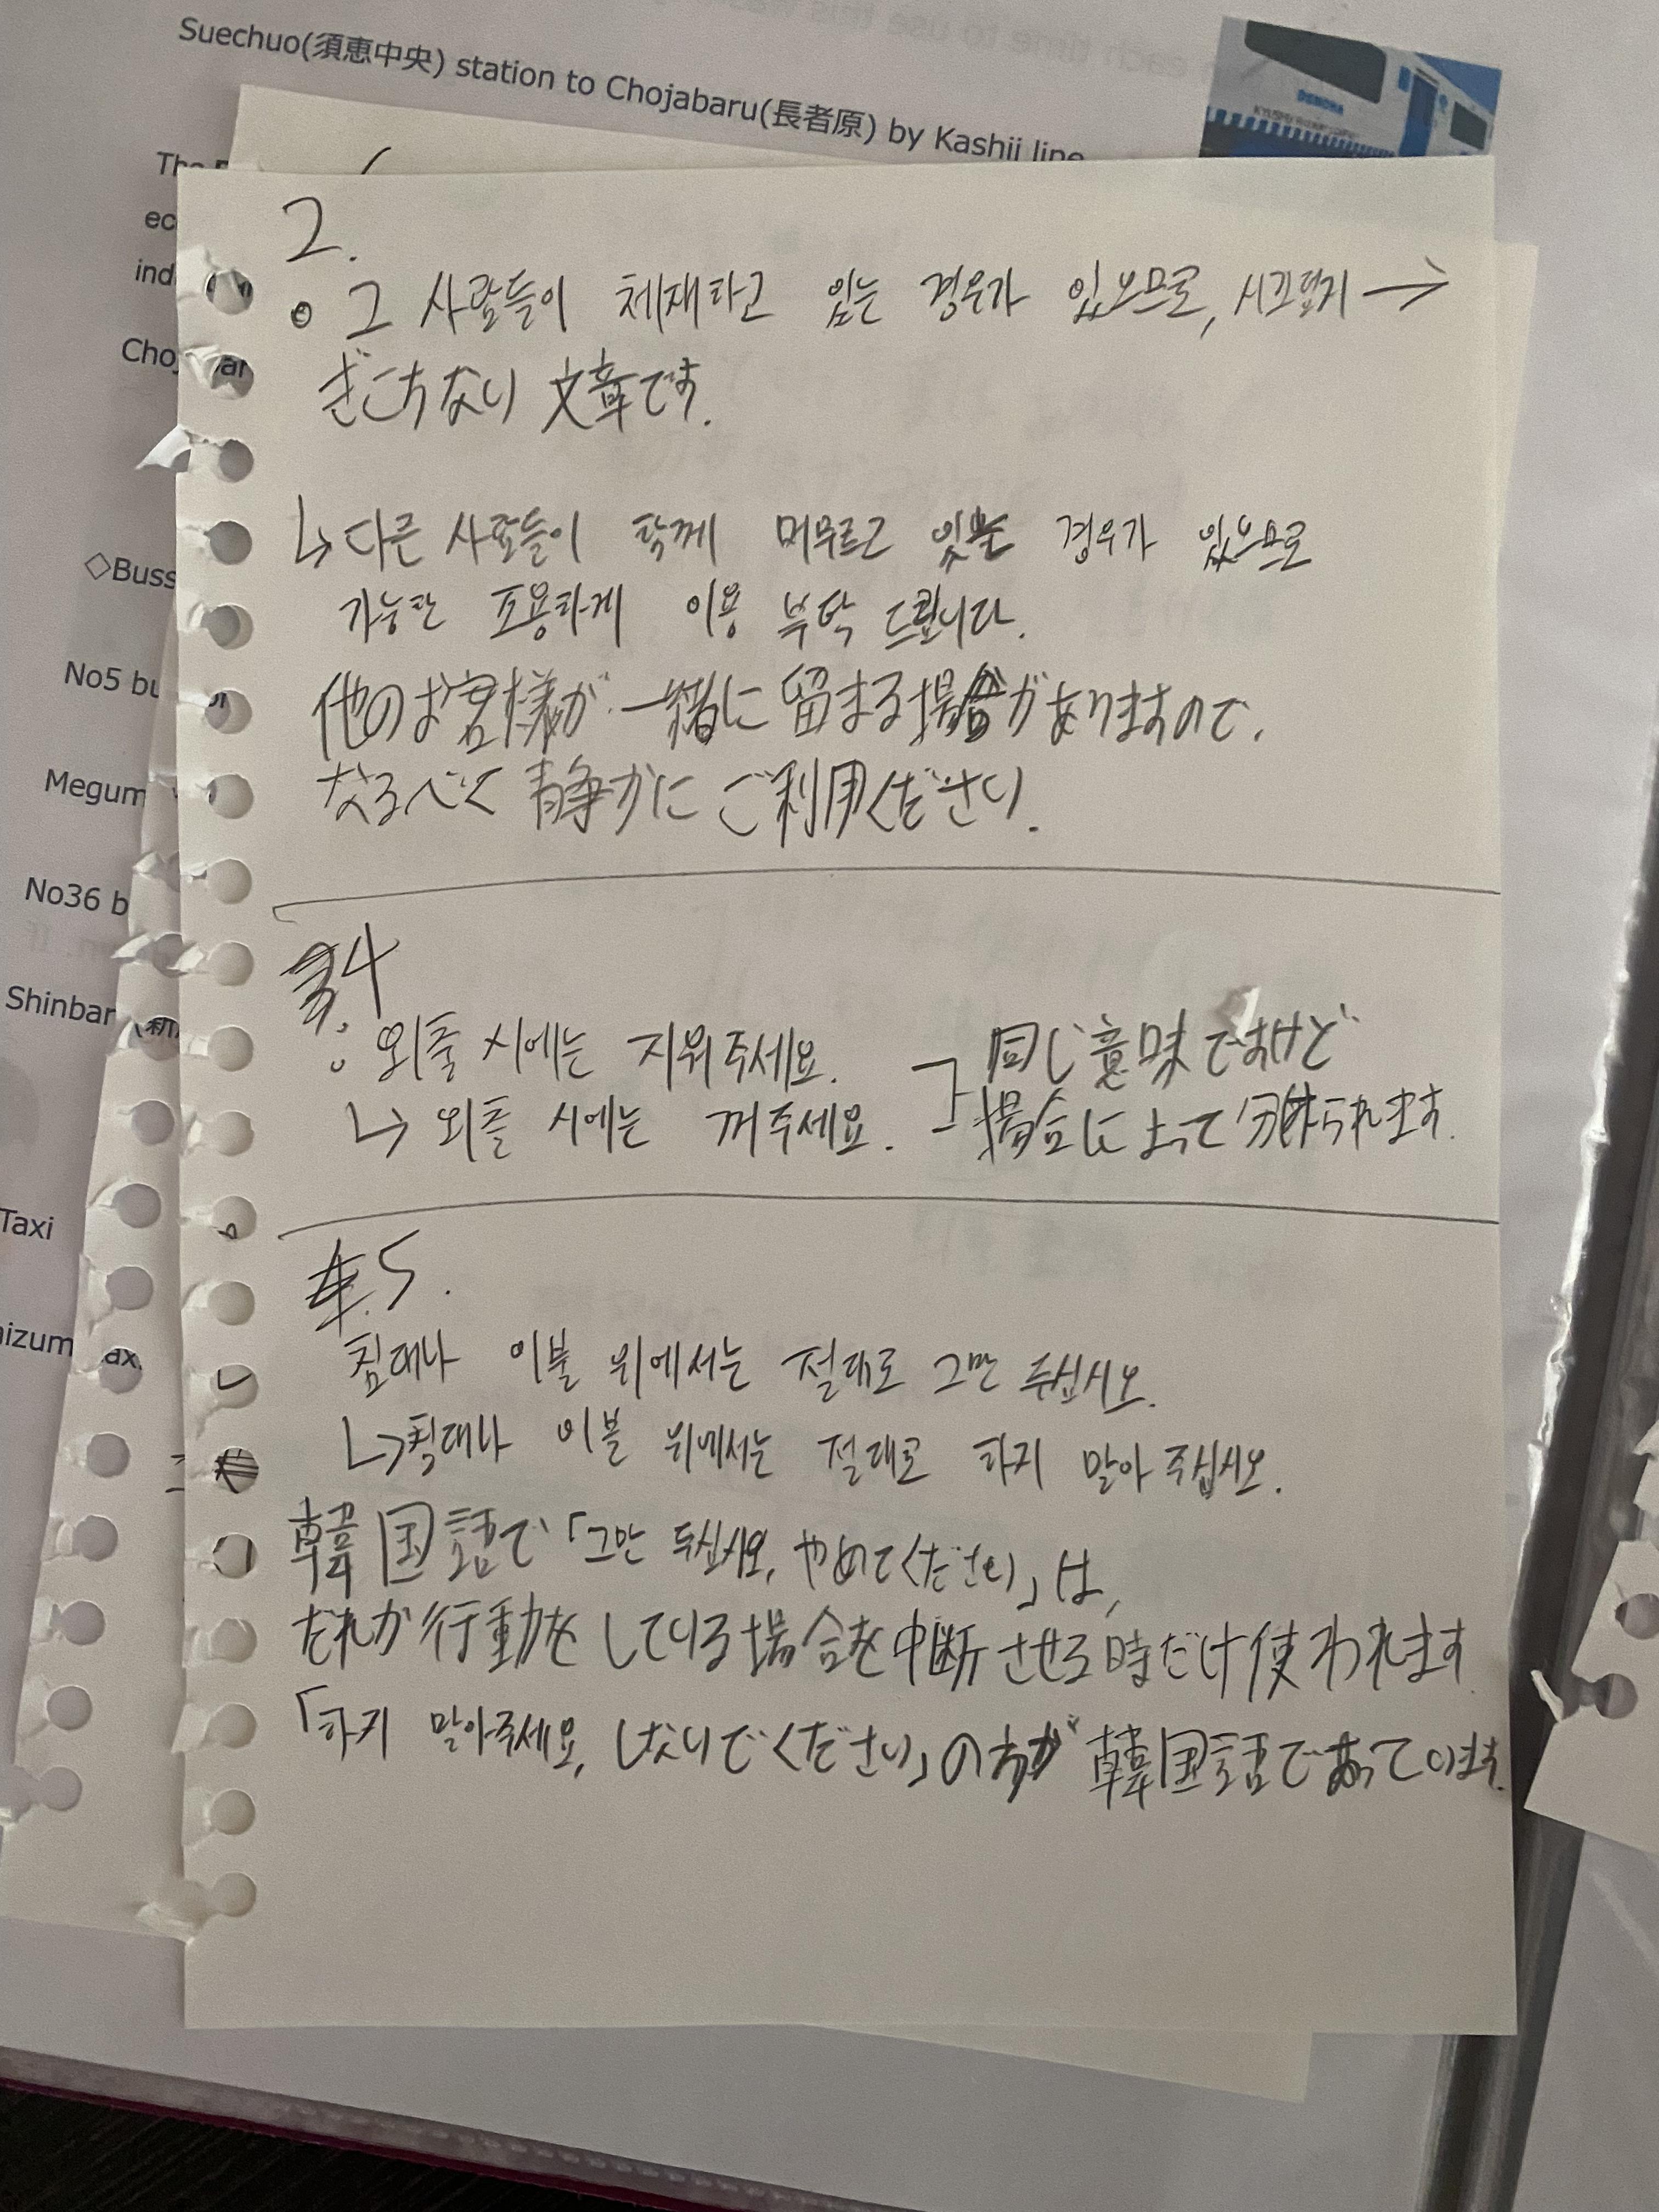 Suechuo(須恵中央) station to Chojabaru(長者原) by Kashii line
DENCHA
2.
그 사람들이 체재하고 있는 경우가 있으므로, 시끄럽지 →
ぎこちない 文章です.
↳ 다른 사람들이 함께 머무르고 있는 경우가 있으므로
가능한 조용하게 이용 부탁 드립니다.
他のお客様が一緒に留まる場合がありますので.
なるべく静かにご利用ください.
4
외출 시에는 지워주세요.
↳ 외출 시에는 꺼주세요.
同じ意味ですけど
場合によって分けられます.
5.
침대나 이불 위에서는 절대로 그만 두십시오.
↳ 침대나 이불 위에서는 절대로 하지 말아 주십시오.
韓国語で「그만 두십시오, やめてください」は,
だれか行動をしている場合を中断させる時だけ使われます
「하지 말아주세요, しないでください」の方が韓国語であっています.
◇Buss
No5 bu
Megum
No36 b
Shinbar
Taxi